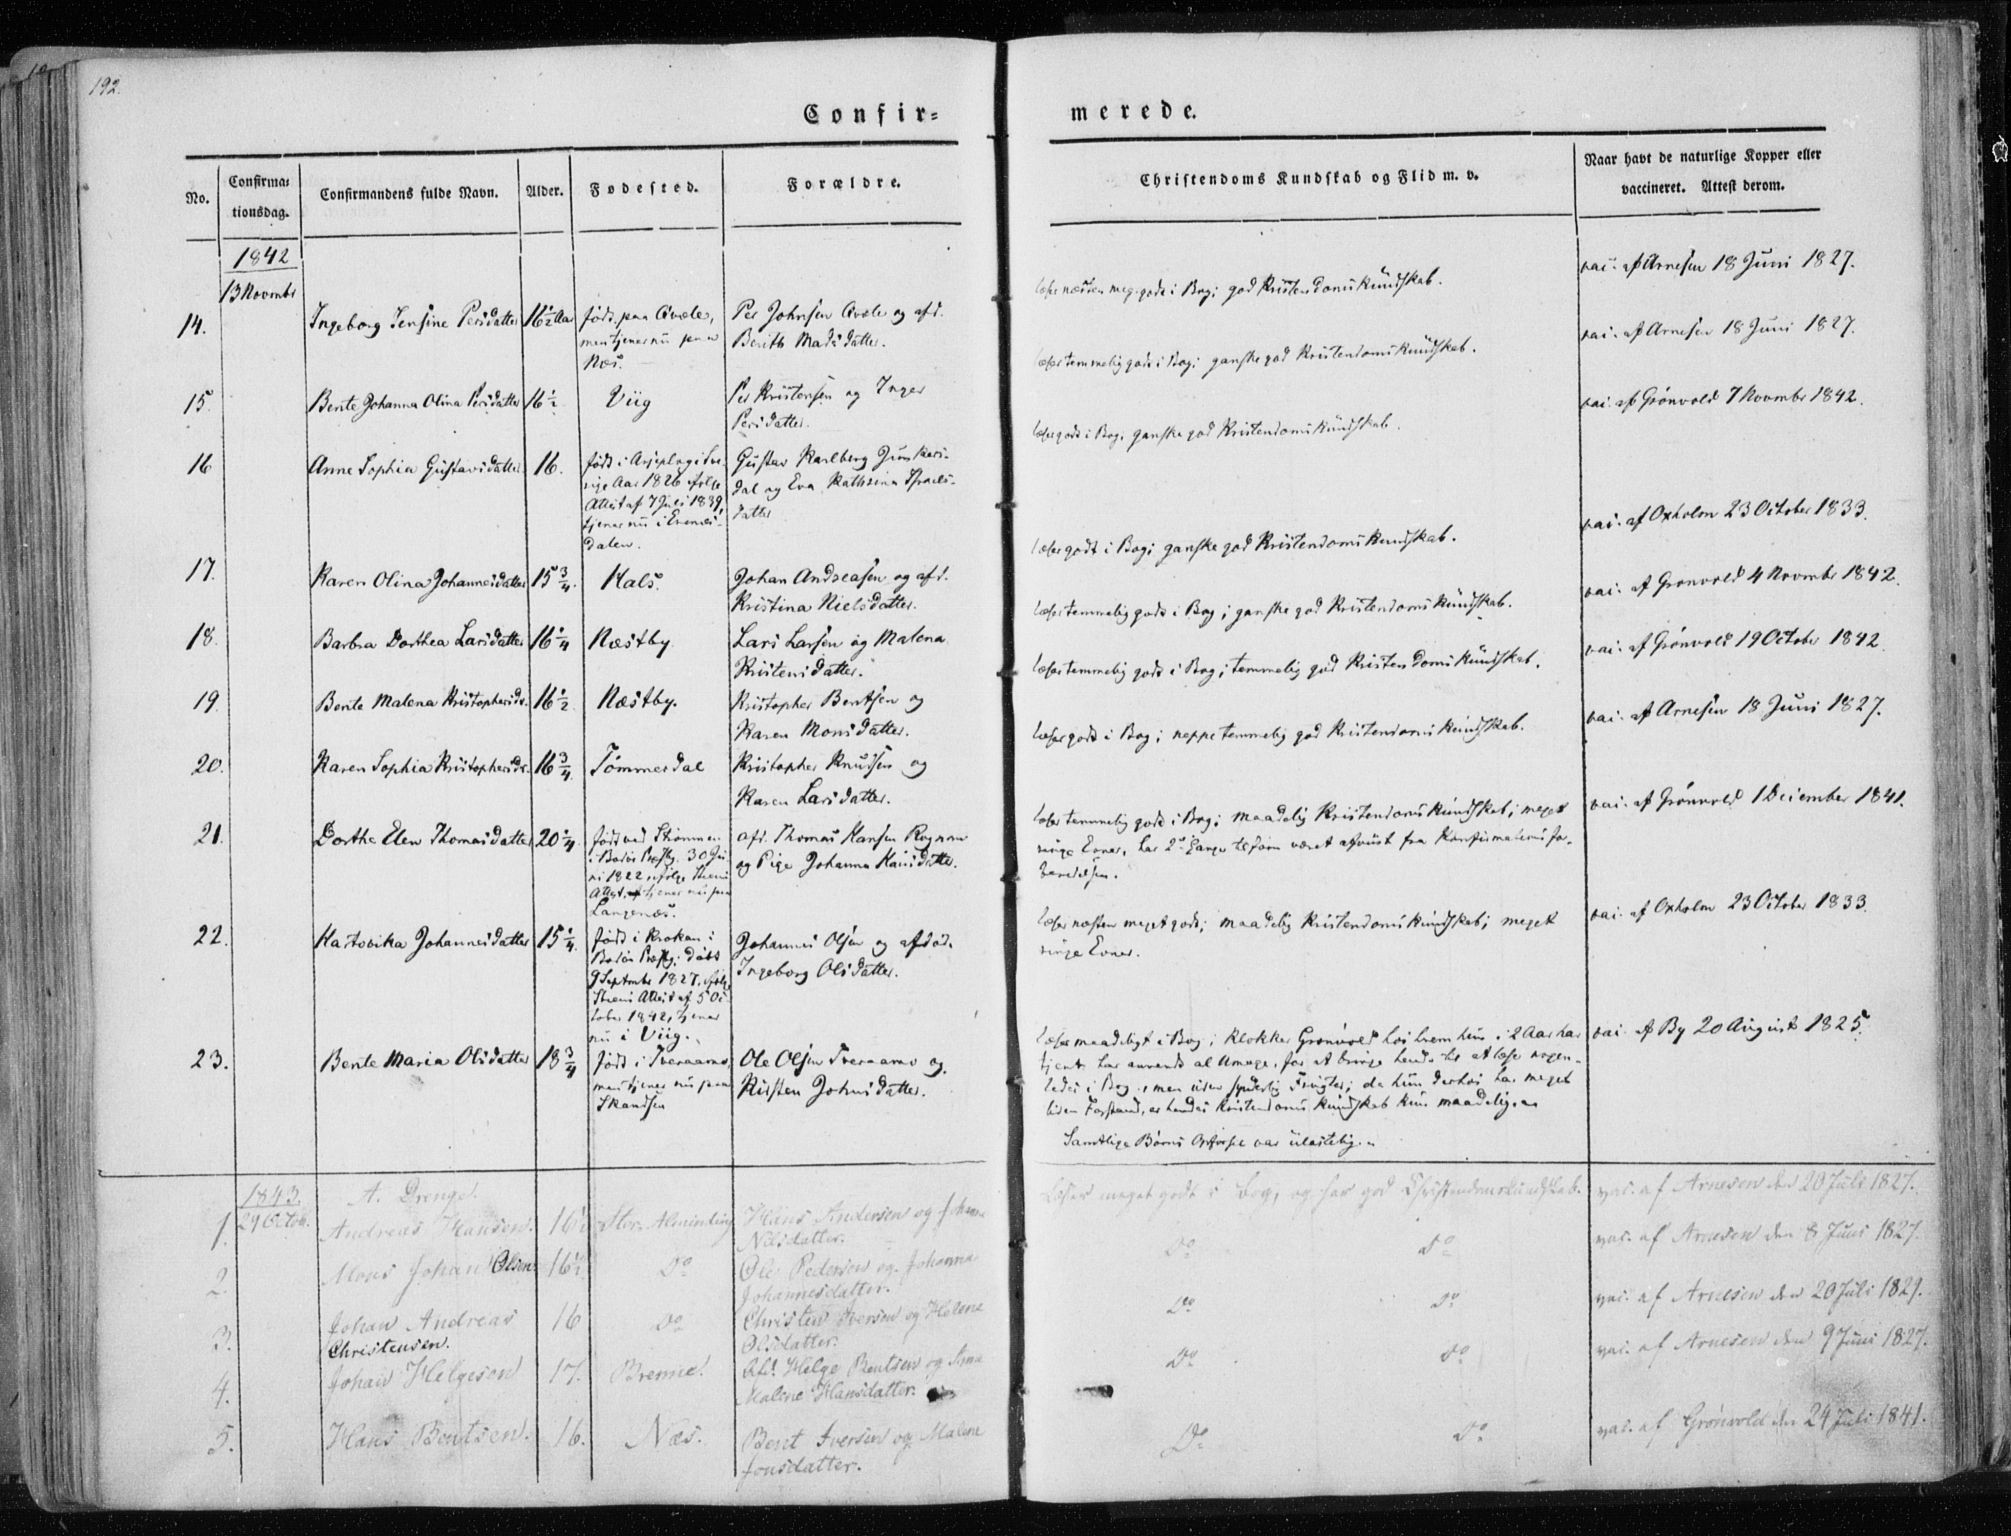 192.
Confir=
merede.
No.
Confirma=
tionsdag.
Confirmandens fulde Navn.
Alder.
Fødested.
Forældre.
Christendoms Kundskab og Flid m. v.
Naar havt de naturlige Kopper eller
vaccineret. Attest derom.
1842
13 Novembr
14.
Ingeborg Jensine Persdatter
16 1/2 Aar
født paa
men tjener nu paa
Næs.
Per Johnsen og afd.
Berith Madsdatter.
læser næsten meg. godt i Bog; god Kristendomskundskab.
vac. af Arnesen 18 Juni 1827.
15.
Bente Johanna Olina Persdatter
16 1/2
Viig
Per Kristensen og Inger
Persdatter.
læser temmelig godt i Bog; ganske god Kristendomskundskab.
vac. af Arnesen 18 Juni 1827.
16
Anne Sophia Gustavsdatter
16.
født i Arjeplog i Sve-
rige Aar 1826 ifølge
Attest af 7 Juli 1839,
tjener nu i Evenes-
dalen.
Gustav Karlberg Junkers-
dal og Eva Kathrina Israels-
datter
læser godt i Bog; ganske god Kristendomskundskab.
vac. af Grønvold 7 Novembr 1842.
17.
Karen Olina Johannesdatter
15 3/4.
Hals.
Johan Andreasen og afd.
Kristina Nielsdatter.
læser godt i Bog; ganske god Kristendomskundskab.
vac. af Oxholm 23 October 1833.
18.
Barbra Dorthea Larsdatter
16 1/4
Næstby
Lars Larsen og Malena
Kristensdatter.
læser temmelig godt i Bog; ganske god Kristendomskundskab.
vac. af Grønvold 4 Novembr 1842.
19.
Bente Malena Kristophersdr.
16 1/2
Næstby.
Kristopher Bentsen og
Karen Monsdatter.
læser temmelig godt i Bog; temmelig god Kristendomskundskab.
vac. af Grønvold 19 October 1842.
20.
Karen Sophia Kristophersdr.
16 3/4.
Tømmerdal
Kristopher Knudsen og
Karen Larsdatter.
læser godt i Bog; neppe temmelig god Kristendomskundskab.
vac. af Arnesen 18 Juni 1827.
21.
Dorthe Elen Thomasdatter
20 1/4
født ved Strømmen
i Bodøs Præstg. 30 Ju-
ni 1822 ifølge
Attest, tjener nu paa
Langenæs.
afd. Thomas Hansen Rognan
og Pige Johanna Hansdatter.
læser temmelig godt i Bog; maadelig Kristendomskundskab; meget
ringe Evner, har 2de Gange tilforn været afviist fra Konfirmations for-
beredelsen.
vac. af Grønvold 1 December 1841.
22.
Hartvika Johannesdatter
15 1/4.
født i Kroken i
Bodøs Præstg; døbt
9 Septembr 1827, ifølge
Attest af 5 Oc-
tober 1842, tjener
nu i Viig.
Johannes Olsen og afdød.
Ingeborg Olsdatter.
læser næsten meget godt; maadelig Kristendomskundskab; meget
ringe Evner.
vac. af Oxholm 23 October 1833.
23.
Bente Maria Olsdatter
18 3/4
født i Tveraamo,
men tjener nu paa
Skandsen
Ole Olsen Tveraamo og
Kirsten Johnsdatter.
læser maadeligt i Bog; Klokker Grønvold hos hvem hun i 2 Aar har
tjent har anvendt al Umage, for at bringe hende til at læse nogen-
ledes i Bog, men uden synderlig Frugter; da hun derhos har meget
liden Forstand, er hendes Kristendomskundskab kun maadelig.
Samtlige Børns Opførsel var ulastelig.
vac. af By 20 August 1825.
1843.
29 Octob.
A. Drenge.
1.
Andreas Hansen.
16 1/2
Stor-Alminding
Hans Andersen og Johanna
Nilsdatter.
Læser meget godt i Bog, og har god Christendomskundskab.
vac. af Arnesen den 20 Juli 1827.
2.
Mons Johan Olsen
16 1/2
Do
Ole Pedersen og Johanna
Johannesdatter.
Do
Do
vac. af Arnesen den 8 Juni 1827.
3.
Johan Andreas
Christensen.
16
Do
Christen Iversen og Helene
Olsdatter.
Do
Do
vac. af Arnesen den 20 Juli 1829.
4.
Johan Helgesen
17.
Bremnes.
Afd. Helge Bentsen og Ane
Malene Hansdatter.
Do
Do
vac. af Arnesen den 9 Juni 1827.
5.
Hans Bentsen.
16.
Næs.
Bent Iversen og Malene
Jonsdatter.
Do
Do
vac. af Grønvold den 24 Juli 1841.